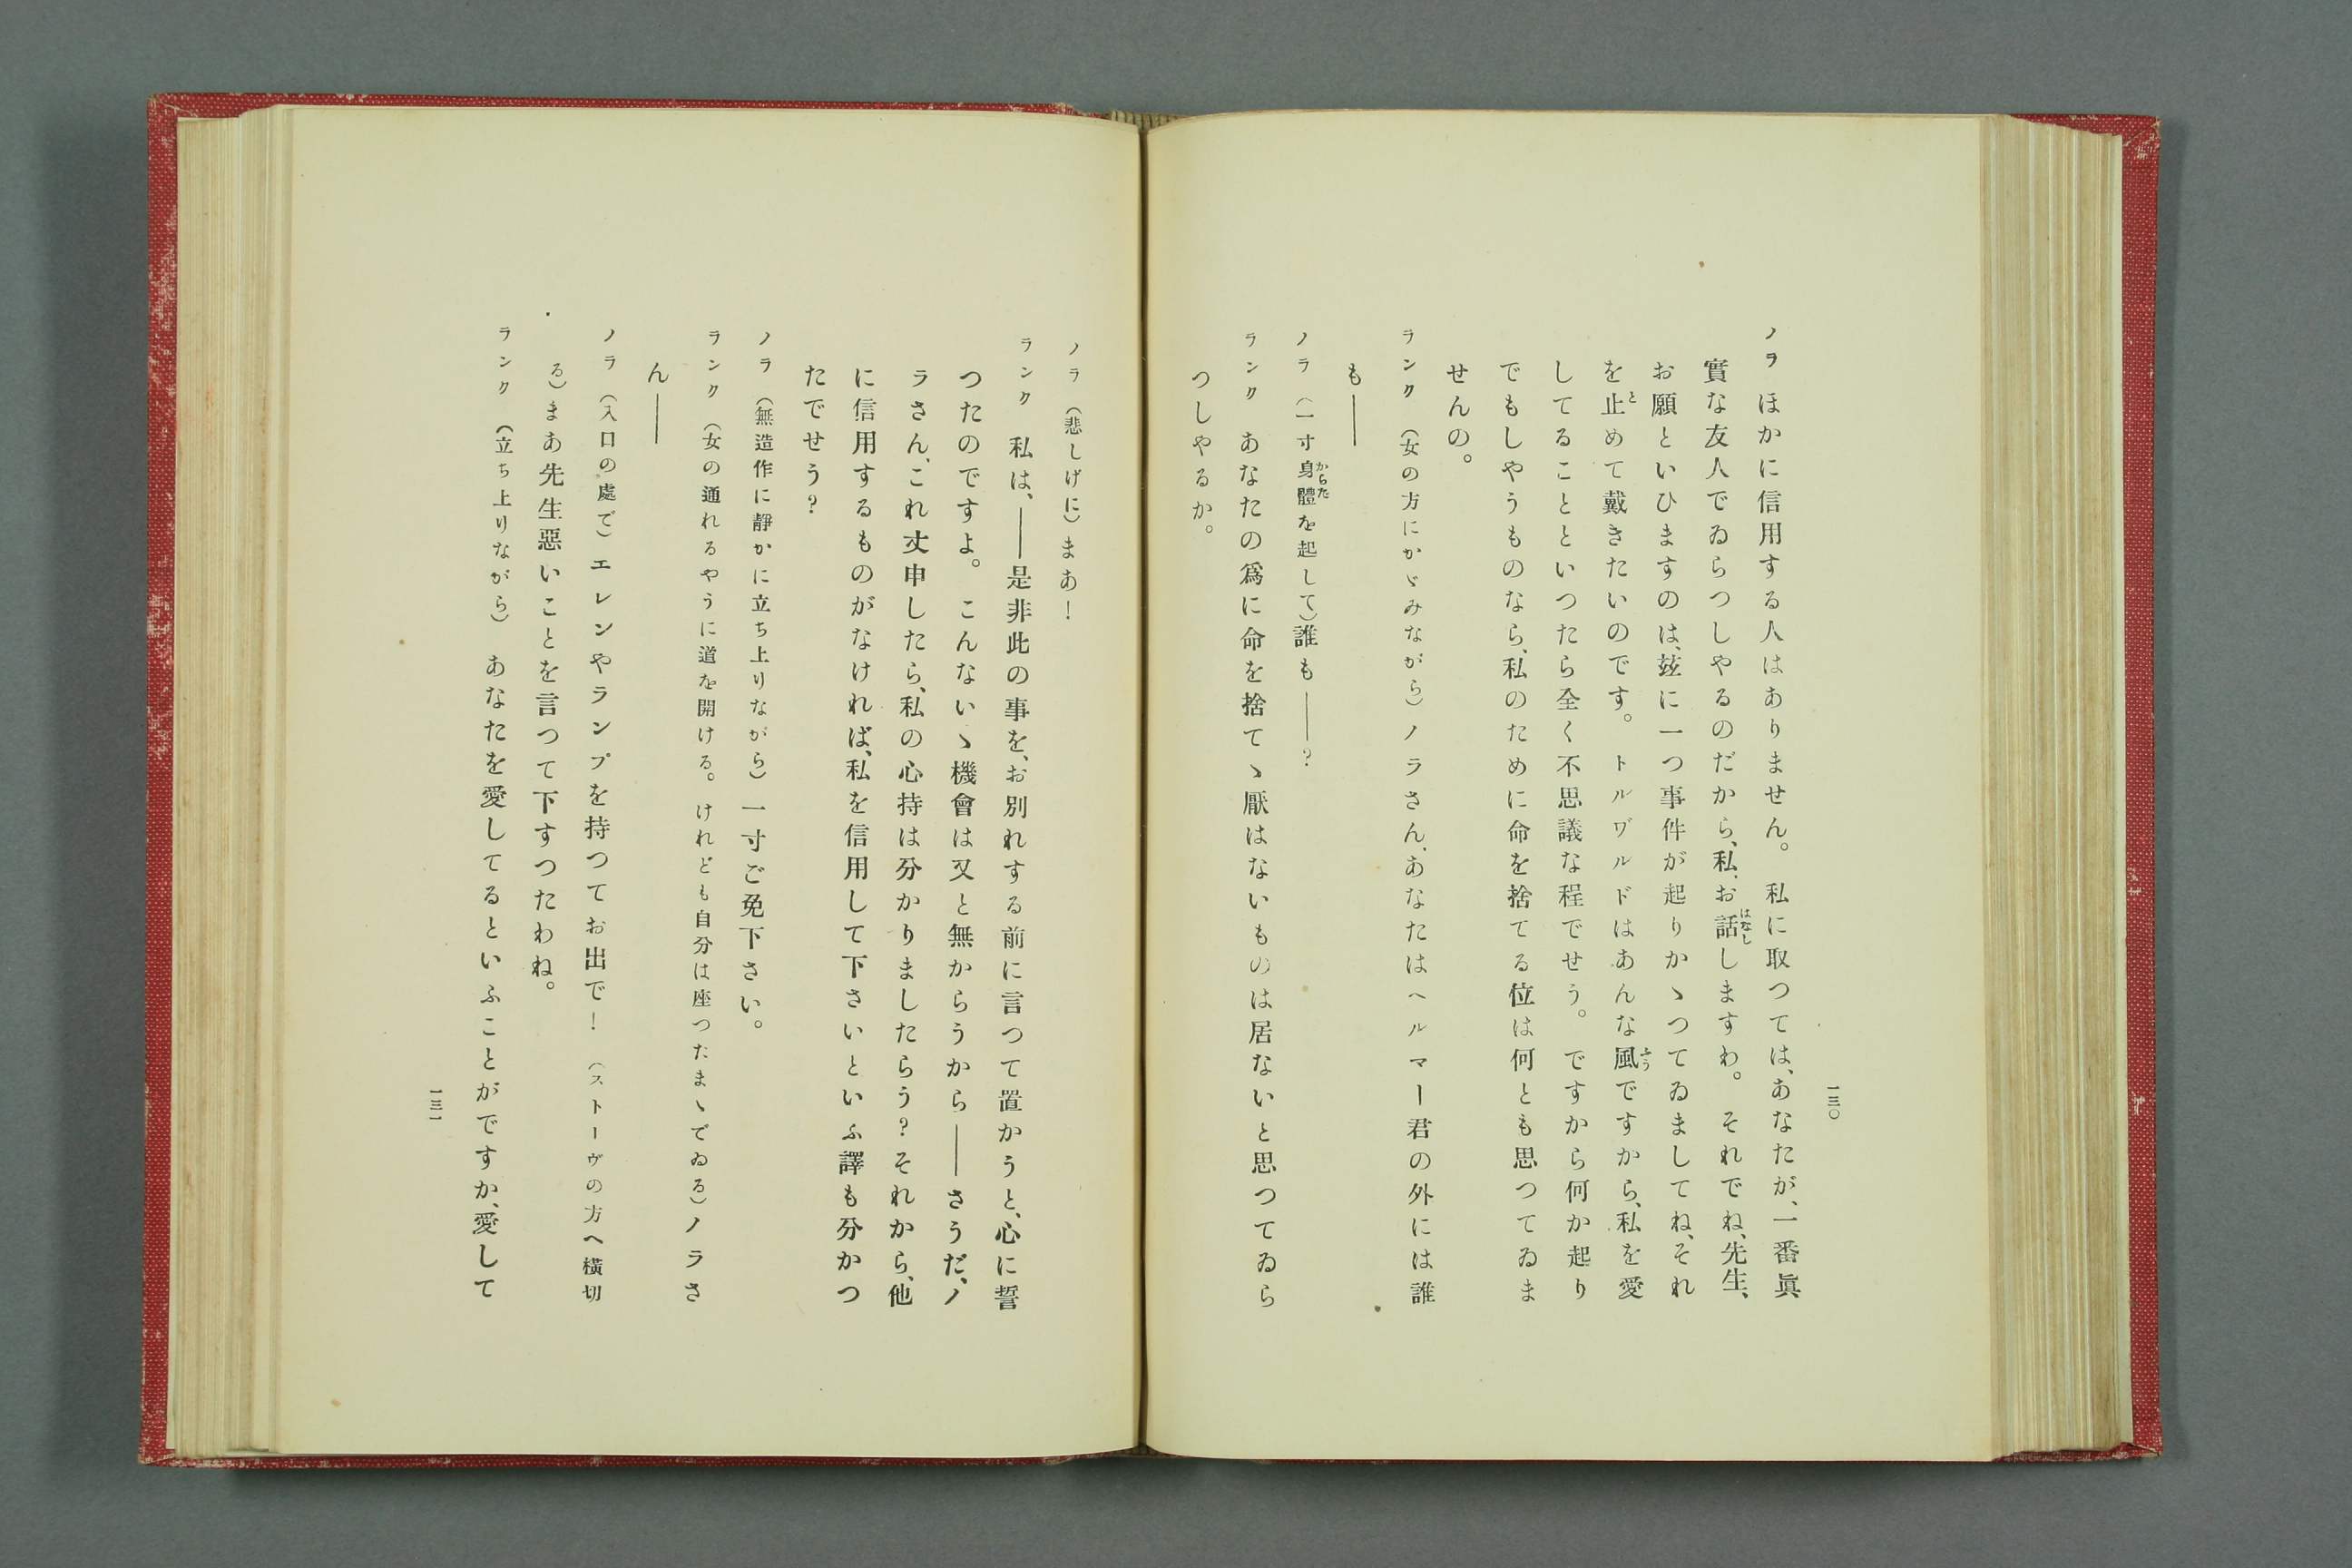 一三〇
ノラ ほかに信用する人はありません。 私に取つては、あなたが、一番眞
實な友人でゐらつしやるのだから、私、お話しますわ。 それでね、先生、
お願といひますのは、玆に一つ事件が起りかゝつてゐましてね、それ
を止めて戴きたいのです。 トルヷルドはあんな風ですから、私を愛
してることといつたら全く不思議な程でせう。 ですから何か起り
でもしやうものなら、私のために命を捨てる位は何とも思つてゐま
せんの。
ランク (女の方にかゞみながら)ノラさん、あなたはヘルマー君の外には誰
も――
ノラ (一寸身體を起して)誰も――?
ランク あなたの爲に命を捨てゝ厭はないものは居ないと思つてゐら
つしやるか。
ノラ (悲しげに)まあ!
ランク 私は、――是非此の事を、お別れする前に言つて置かうと、心に誓
つたのですよ。 こんないゝ機會は又と無からうから――さうだ、ノ
ラさん、これ丈申したら、私の心持は分かりましたらう?それから、他
に信用するものがなければ、私を信用して下さいといふ譯も分かつ
たでせう?
ノラ (無造作に靜かに立ち上りながら)一寸ご免下さい。
ランク (女の通れるやうに道を開ける。けれども自分は座つたまゝでゐる)ノラさ
ん――
ノラ (入口の處で)エレンやランプを持つてお出で! (ストーヴの方へ橫切
る)まあ先生惡いことを言つて下すつたわね。
ランク (立ち上りながら) あなたを愛してるといふことがですか、愛して
一三一